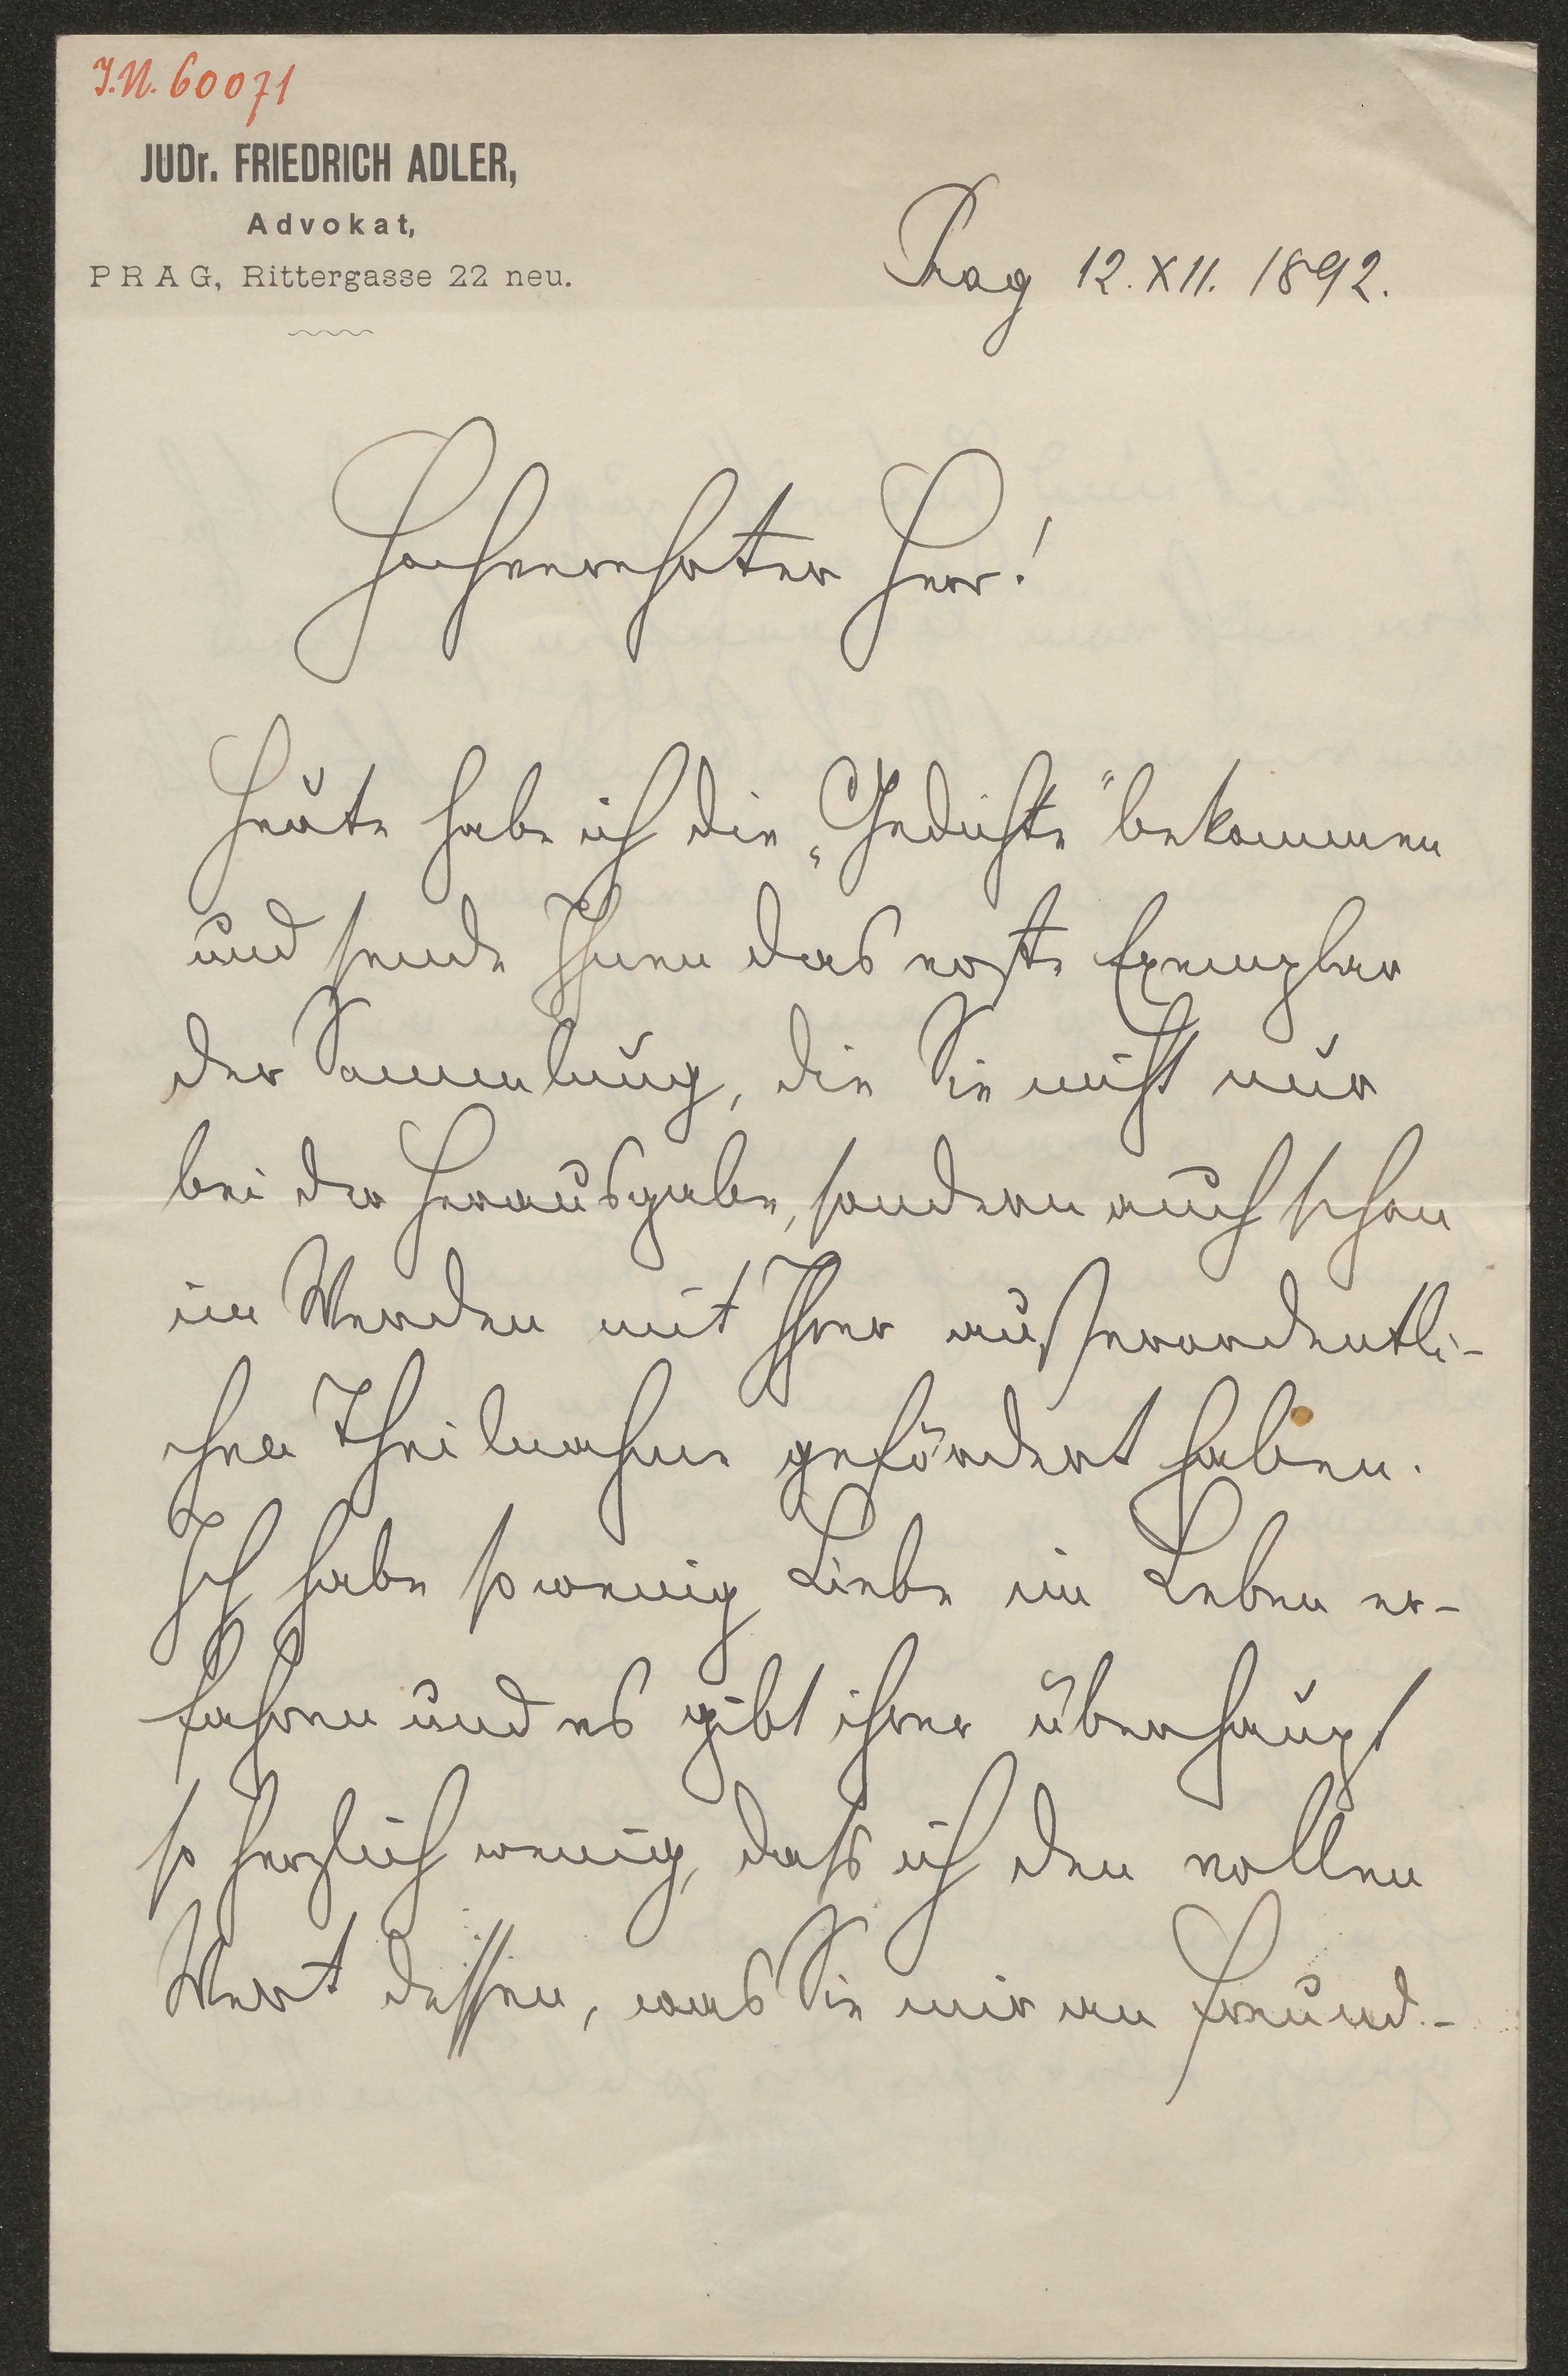 J.N. 60071
JUDr. FRIEDRICH ADLER,
Advokat,
PRAG, Rittergasse 22 neu.
Prag 12. XII. 1892.
Hochverehrter Herr!
Heute habe ich die „Gedichte" bekommen
und sende Ihnen das erste Exemplar
der Sammlung, die Sie nicht nur
bei der Herausgabe, sondern auch schon
im Werden mit Ihrer außerordentli-
chen Theilnahme gefördert haben.
Ich habe so wenig Liebe im Leben er-
fahren und es gibt ihrer überhaupt
so herzlich wenig, dass ich den vollen
Wert dessen, was Sie mir an Freund-